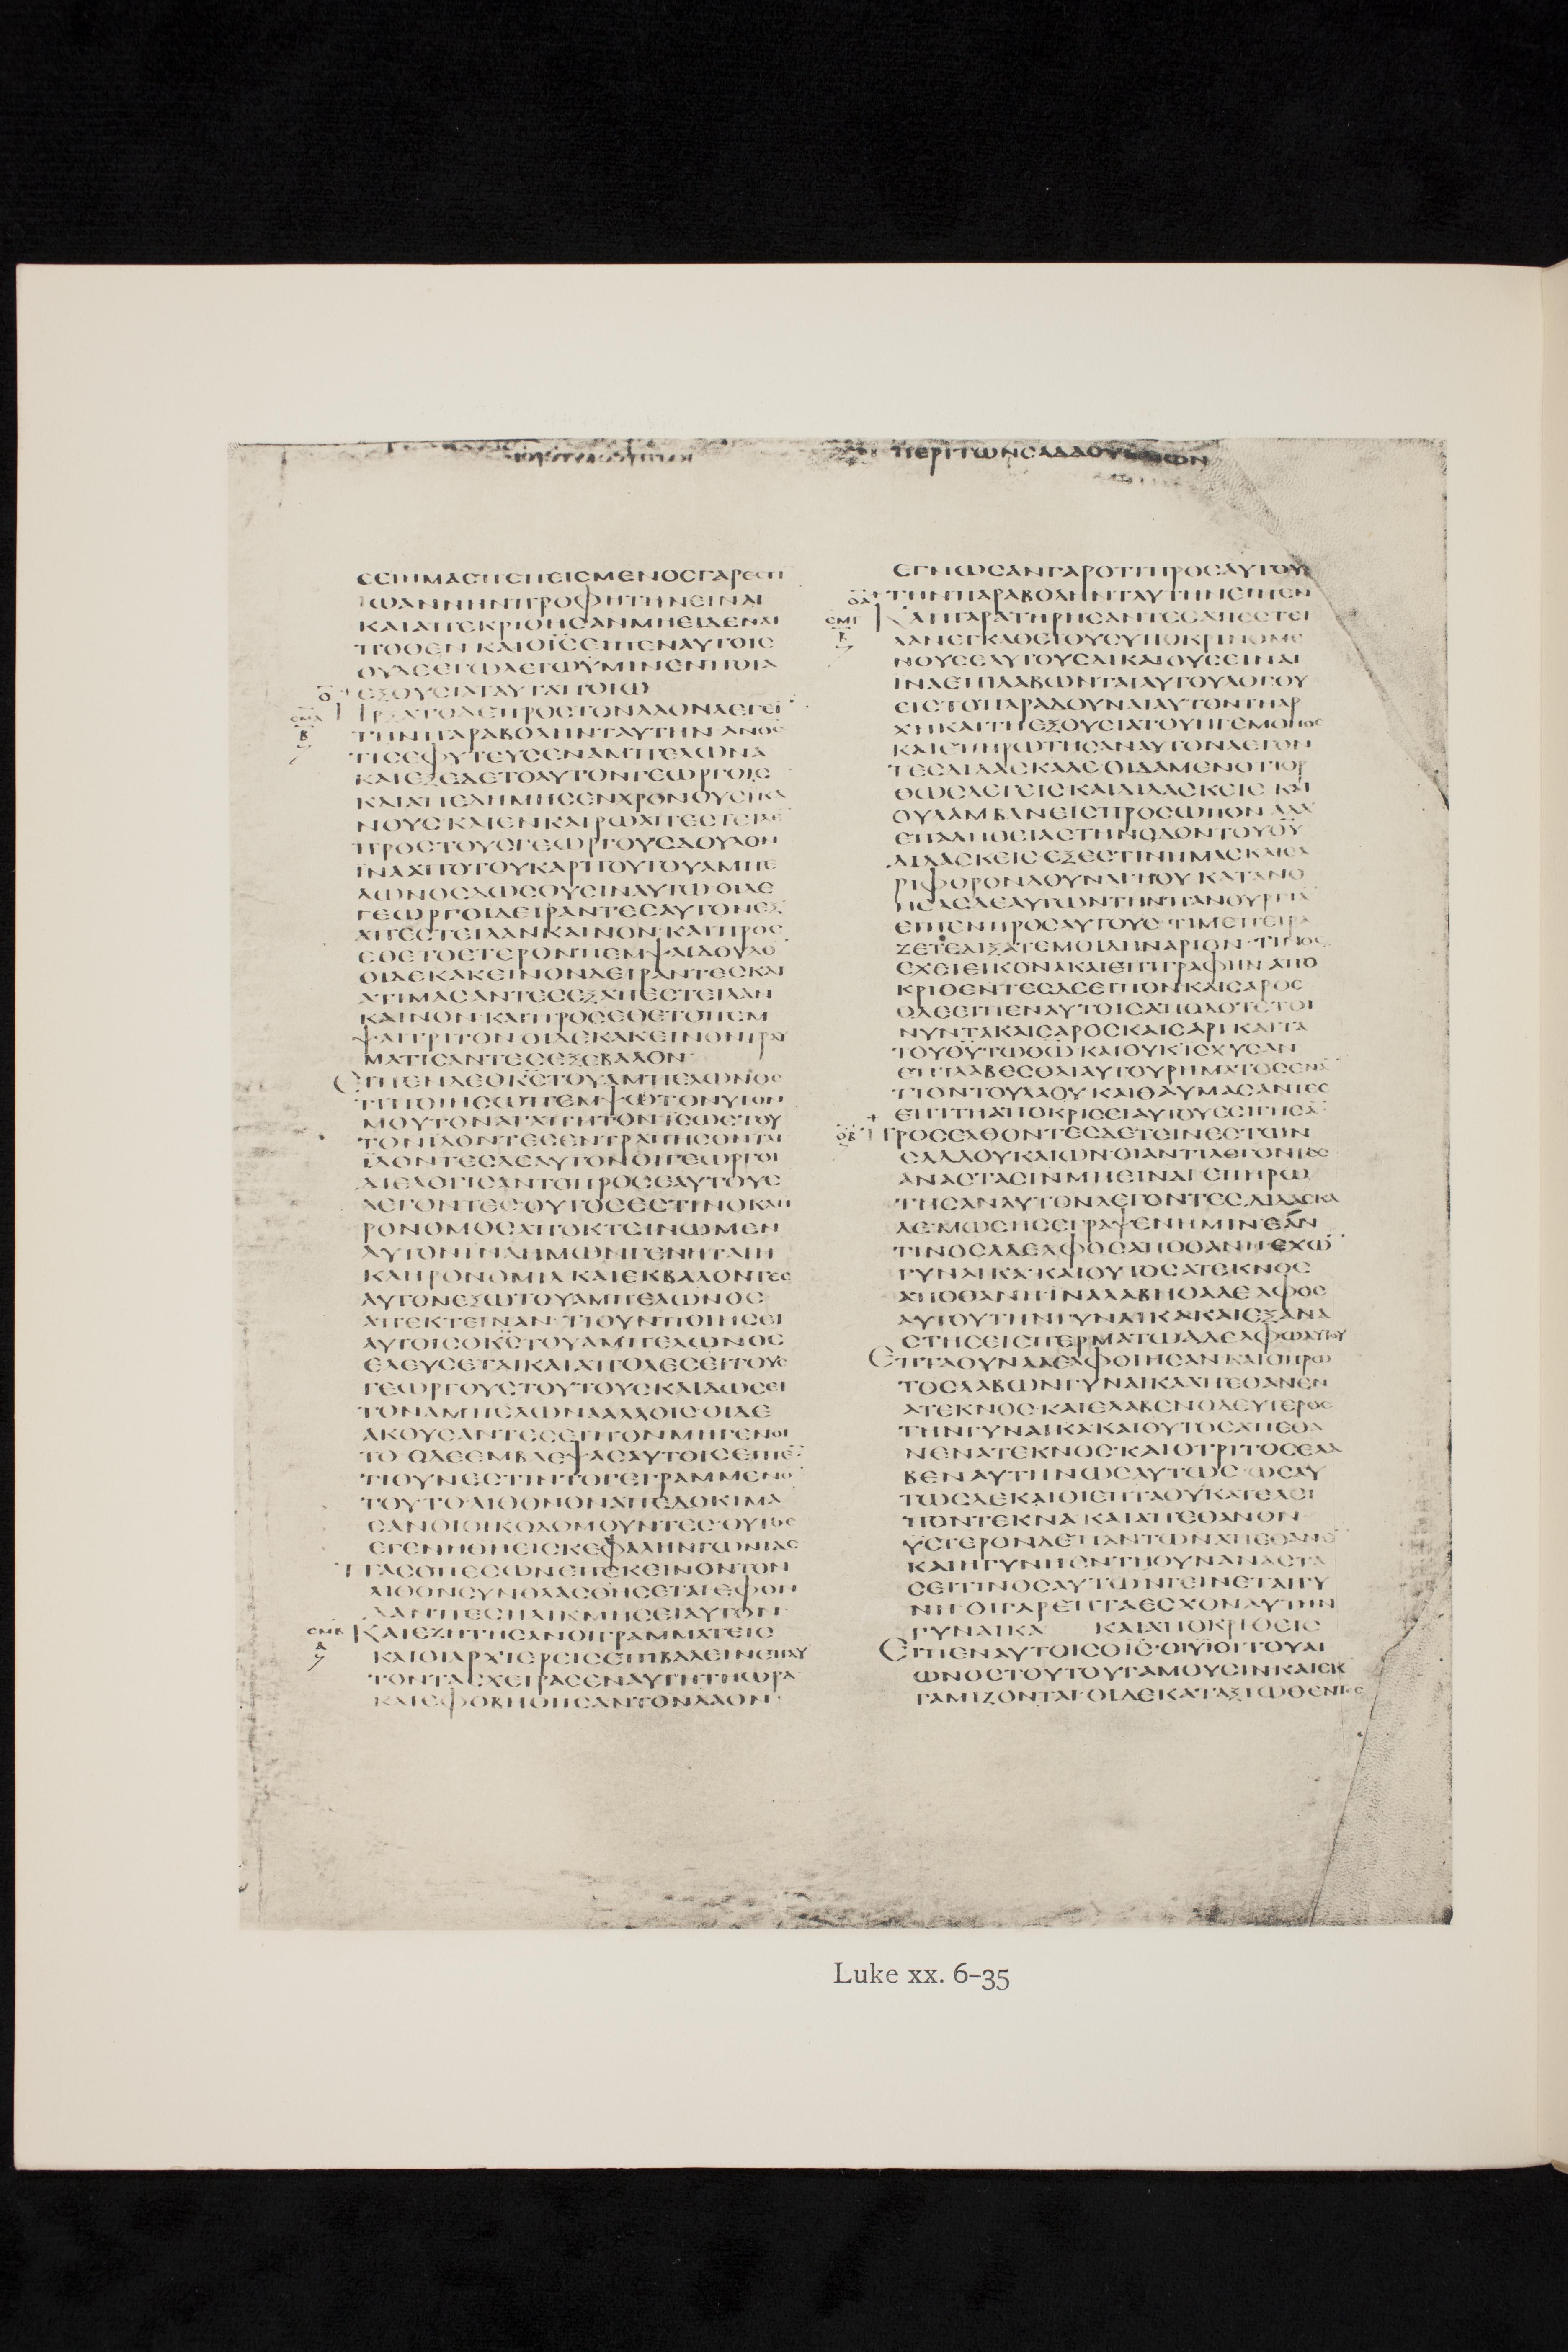 ΠΕΡΙΤΩΝϹΑΔΔΟΥΚΑΙΩΝ
ϹΕΙΗΜΑϹΠΕΠΕΙϹΜΕΝΟϹΓΑΡΕϹΤΙ
ΙΩΑΝΝΗΝΠΡΟΦΗΤΗΝΕΙΝΑΙ
ΚΑΙΑΠΕΚΡΙΘΗϹΑΝΜΗΕΙΔΕΝΑΙ
ΠΟΘΕΝ ΚΑΙΟΙ̅Ϲ̅ΕΙΠΕΝΑΥΤΟΙϹ
ΟΥΔΕΕΓΩΛΕΓΩΫΜΙΝΕΝΠΟΙΑ
ΕΞΟΥϹΙΑΤΑΥΤΑΠΟΙΩ
ΗΡΞΑΤΟΔΕΠΡΟϹΤΟΝΛΑΟΝΛΕΓΕΙ
ΤΗΝΠΑΡΑΒΟΛΗΝΤΑΥΤΗΝ·ΑΝΟϹ
ΤΙϹΕΦΥΤΕΥϹΕΝΑΜΠΕΛΩΝΑ
ΚΑΙΕΞΕΔΕΤΟΑΥΤΟΝΓΕΩΡΓΟΙϹ
ΚΑΙΑΠΕΔΗΜΗϹΕΝΧΡΟΝΟΥϹΙΚΑ
ΝΟΥϹ·ΚΑΙΕΝΚΑΙΡΩΑΠΕϹΤΕΙΛΕ
ΠΡΟϹΤΟΥϹΓΕΩΡΓΟΥϹΔΟΥΛΟΝ
ΪΝΑΑΠΟΤΟΥΚΑΡΠΟΥΤΟΥΑΜΠΕ
ΛΩΝΟϹΔΩϹΟΥϹΙΝΑΥΤΩ ΟΙΔΕ
ΓΕΩΡΓΟΙΔΕΙΡΑΝΤΕϹΑΥΤΟΝΕΞ
ΑΠΕϹΤΕΙΛΑΝΚΑΙΝΟΝ·ΚΑΙΠΡΟϹ
ΕΘΕΤΟΕΤΕΡΟΝΠΕΜΨΑΙΔΟΥΛΟ
ΟΙΔΕΚΑΚΕΙΝΟΝΔΕΙΡΑΝΤΕϹΚΑΙ
ΑΤΙΜΑϹΑΝΤΕϹΕΞΑΠΕϹΤΕΙΛΑΝ
ΚΑΙΝΟΝ·ΚΑΙΠΡΟϹΕΘΕΤΟΠΕΜ
ΨΑΙΤΡΙΤΟΝ ΟΙΔΕΚΑΚΕΙΝΟΝΤΡΑΥ
ΜΑΤΙϹΑΝΤΕϹΕΞΕΒΑΛΟΝ·
ΕΙΠΕΝΔΕΟΚ̅Ϲ̅ΤΟΥΑΜΠΕΛΩΝΟϹ
ΤΙΠΟΙΗϹΩΠΕΜΨΩΤΟΝΥΙΟΝ
ΜΟΥΤΟΝΑΓΑΠΗΤΟΝΪϹΩϹΤΟΥ
ΤΟΝΙΔΟΝΤΕϹΕΝΤΡΑΠΗϹΟΝΤΑΙ
ΪΔΟΝΤΕϹΔΕΑΥΤΟΝΟΙΓΕΩΡΓΟΙ
ΔΙΕΛΟΓΙϹΑΝΤΟΠΡΟϹΕΑΥΤΟΥϹ
ΛΕΓΟΝΤΕϹ·ΟΥΤΟϹΕϹΤΙΝΟΚΛΗ
ΡΟΝΟΜΟϹΑΠΟΚΤΕΙΝΩΜΕΝ
ΑΥΤΟΝΙΝΑΗΜΩΝΓΕΝΗΤΑΙΗ
ΚΛΗΡΟΝΟΜΙΑ ΚΑΙΕΚΒΑΛΟΝΤΕϹ
ΑΥΤΟΝΕΞΩΤΟΥΑΜΠΕΛΩΝΟϹ
ΑΠΕΚΤΕΙΝΑΝ·ΤΙΟΥΝΠΟΙΗϹΕΙ
ΑΥΤΟΙϹΟΚ̅Ϲ̅ΤΟΥΑΜΠΕΛΩΝΟϹ
ΕΛΕΥϹΕΤΑΙΚΑΙΑΠΟΛΕϹΕΙΤΟΥϹ
ΓΕΩΡΓΟΥϹΤΟΥΤΟΥϹΚΑΙΔΩϹΕΙ
ΤΟΝΑΜΠΕΛΩΝΑΑΛΛΟΙϹ·ΟΙΔΕ
ΑΚΟΥϹΑΝΤΕϹΕΙΠΟΝΜΗΓΕΝΟΙ
ΤΟ·ΟΔΕΕΜΒΛΕΨΑϹΑΥΤΟΙϹΕΙΠΕ
ΤΙΟΥΝΕϹΤΙΝΤΟΓΕΓΡΑΜΜΕΝΟ
ΤΟΥΤΟ·ΛΙΘΟΝΟΝΑΠΕΔΟΚΙΜΑ
ϹΑΝΟΙΟΙΚΟΔΟΜΟΥΝΤΕϹ·ΟΥΤΟϹ
ΕΓΕΝΗΘΗΕΙϹΚΕΦΑΛΗΝΓΩΝΙΑϹ
ΠΑϹΟΠΕϹΩΝΕΠΕΚΕΙΝΟΝΤΟΝ
ΛΙΘΟΝϹΥΝΘΛΑϹΘΗϹΕΤΑΙΕΦΟΝ
ΔΑΝΠΕϹΗΛΙΚΜΗϹΕΙΑΥΤΟΝ·
ΚΑΙΕΖΗΤΗϹΑΝΟΙΓΡΑΜΜΑΤΕΙϹ
ΚΑΙΟΙΑΡΧΙΕΡΕΙϹΕΠΙΒΑΛΕΙΝΕΠΑΥ
ΤΟΝΤΑϹΧΕΙΡΑϹΕΝΑΥΤΗΤΗΩΡΑ
ΚΑΙΕΦΟΒΗΘΗϹΑΝΤΟΝΛΑΟΝ·
ΕΓΝΩϹΑΝΓΑΡΟΤΙΠΡΟϹΑΥΤΟΥϹ
ΤΗΝΠΑΡΑΒΟΛΗΝΤΑΥΤΗΝΕΙΠΕΝ
ΚΑΙΠΑΡΑΤΗΡΗϹΑΝΤΕϹΑΠΕϹΤΕΙ
ΛΑΝΕΓΚΑΘΕΤΟΥϹΥΠΟΚΡΙΝΟΜΕ
ΝΟΥϹΕΑΥΤΟΥϹΔΙΚΑΙΟΥϹΕΙΝΑΙ
ΙΝΑΕΠΙΛΑΒΩΝΤΑΙΑΥΤΟΥΛΟΓΟΥ
ΕΙϹΤΟΠΑΡΑΔΟΥΝΑΙΑΥΤΟΝΤΗΑΡ
ΧΗΚΑΙΤΗΕΞΟΥϹΙΑΤΟΥΗΓΕΜΟΝΟϹ
ΚΑΙΕΠΗΡΩΤΗϹΑΝΑΥΤΟΝΛΕΓΟΝ
ΤΕϹΔΙΔΑϹΚΑΛΕ ΟΙΔΑΜΕΝΟΤΙΟΡ
ΘΩϹΛΕΓΕΙϹ ΚΑΙΔΙΔΑϹΚΕΙϹ ΚΑΙ
ΟΥΛΑΜΒΑΝΕΙϹΠΡΟϹΩΠΟΝ ΑΛΛ
ΕΠΑΛΗΘΕΙΑϹΤΗΝΟΔΟΝΤΟΥΘ̅Υ̅
ΔΙΔΑϹΚΕΙϹ ΕΞΕϹΤΙΝΗΜΑϹΚΑΙϹΑ
ΡΙΦΟΡΟΝΔΟΥΝΑΙΗΟΥ ΚΑΤΑΝΟ
ΗϹΑϹΔΕΑΥΤΩΝΤΗΝΠΑΝΟΥΡΓΙΑ
ΕΙΠΕΝΠΡΟϹΑΥΤΟΥϹ·ΤΙΜΕΠΕΙΡΑ
ΖΕΤΕΔΙΞΑΤΕΜΟΙΔΗΝΑΡΙΟΝ·ΤΙΝΟϹ
ΕΧΕΙΕΙΚΟΝΑΚΑΙΕΠΙΓΡΑΦΗΝ ΑΠΟ
ΚΡΙΘΕΝΤΕϹΔΕΕΙΠΟΝΚΑΙϹΑΡΟϹ
ΟΔΕΕΙΠΕΝΑΥΤΟΙϹΑΠΟΔΟΤΕΤΟΙ
ΝΥΝΤΑΚΑΙϹΑΡΟϹΚΑΙϹΑΡΙ ΚΑΙΤΑ
ΤΟΥΘ̅Υ̅ΤΩΘ̅Ω̅ ΚΑΙΟΥΚΙϹΧΥϹΑΝ
ΕΠΙΛΑΒΕϹΘΑΙΑΥΤΟΥΡΗΜΑΤΟϹΕΝΑ
ΤΙΟΝΤΟΥΛΑΟΥ ΚΑΙΘΑΥΜΑϹΑΝΤΕϹ
ΕΠΙΤΗΑΠΟΚΡΙϹΕΙΑΥΤΟΥΕϹΙΓΗϹΑ
ΠΡΟϹΕΛΘΟΝΤΕϹΔΕΤΕΙΝΕϹΤΩΝ
ϹΑΔΔΟΥΚΑΙΩΝ·ΟΙΑΝΤΙΛΕΓΟΝΤΕϹ
ΑΝΑϹΤΑϹΙΝΜΗΕΙΝΑΙ ΕΠΗΡΩ
ΤΗϹΑΝΑΥΤΟΝΛΕΓΟΝΤΕϹ ΔΙΔΑϹΚΑ
ΛΕ·ΜΩϹΗϹΕΓΡΑΨΕΝΗΜΙΝ·ΕΑΝ
ΤΙΝΟϹΑΔΕΛΦΟϹΑΠΟΘΑΝΗ·ΕΧΩ
ΓΥΝΑΙΚΑ·ΚΑΙΟΥΤΟϹΑΤΕΚΝΟϹ
ΑΠΟΘΑΝΗ·ΪΝΑΛΑΒΗΟΑΔΕΛΦΟϹ
ΑΥΤΟΥΤΗΝΓΥΝΑΙΚΑΚΑΙΕΞΑΝΑ
ϹΤΗϹΕΙϹΠΕΡΜΑΤΩΑΔΕΛΦΩΑΥΤΟΥ
ΕΠΤΑΟΥΝΑΔΕΛΦΟΙΗϹΑΝ ΚΑΙΟΠΡΩ
ΤΟϹΛΑΒΩΝΓΥΝΑΙΚΑΑΠΕΘΑΝΕΝ
ΑΤΕΚΝΟϹ·ΚΑΙΕΛΑΒΕΝΟΔΕΥΤΕΡΟϹ
ΤΗΝΓΥΝΑΙΚΑΚΑΙΟΥΤΟϹΑΠΕΘΑ
ΝΕΝΑΤΕΚΝΟϹ·ΚΑΙΟΤΡΙΤΟϹΕΛΑ
ΒΕΝΑΥΤΗΝΩϹΑΥΤΩϹ·ΩϹΑΥ
ΤΩϹΔΕΚΑΙΟΙΕΠΤΑΟΥΚΑΤΕΛΕΙ
ΠΟΝΤΕΚΝΑ ΚΑΙΑΠΕΘΑΝΟΝ·
ΫϹΤΕΡΟΝΔΕΠΑΝΤΩΝΑΠΕΘΑΝΕ
ΚΑΙΗΓΥΝΗΕΝΤΗΟΥΝΑΝΑϹΤΑ
ϹΕΙΤΙΝΟϹΑΥΤΩΝΓΕΙΝΕΤΑΙΓΥ
ΝΗ·ΟΙΓΑΡΕΠΤΑΕϹΧΟΝΑΥΤΗΝ
ΓΥΝΑΙΚΑ ΚΑΙΑΠΟΚΡΙΘΕΙϹ
ΕΙΠΕΝΑΥΤΟΙϹΟΙ̅Ϲ̅·ΟΙΥΪΟΙΤΟΥΑΙ
ΩΝΟϹΤΟΥΤΟΥΓΑΜΟΥϹΙΝΚΑΙΕΚ
ΓΑΜΙΖΟΝΤΑΙ·ΟΙΔΕΚΑΤΑΞΙΩΘΕΝΤΕϹ
Luke xx. 6–35